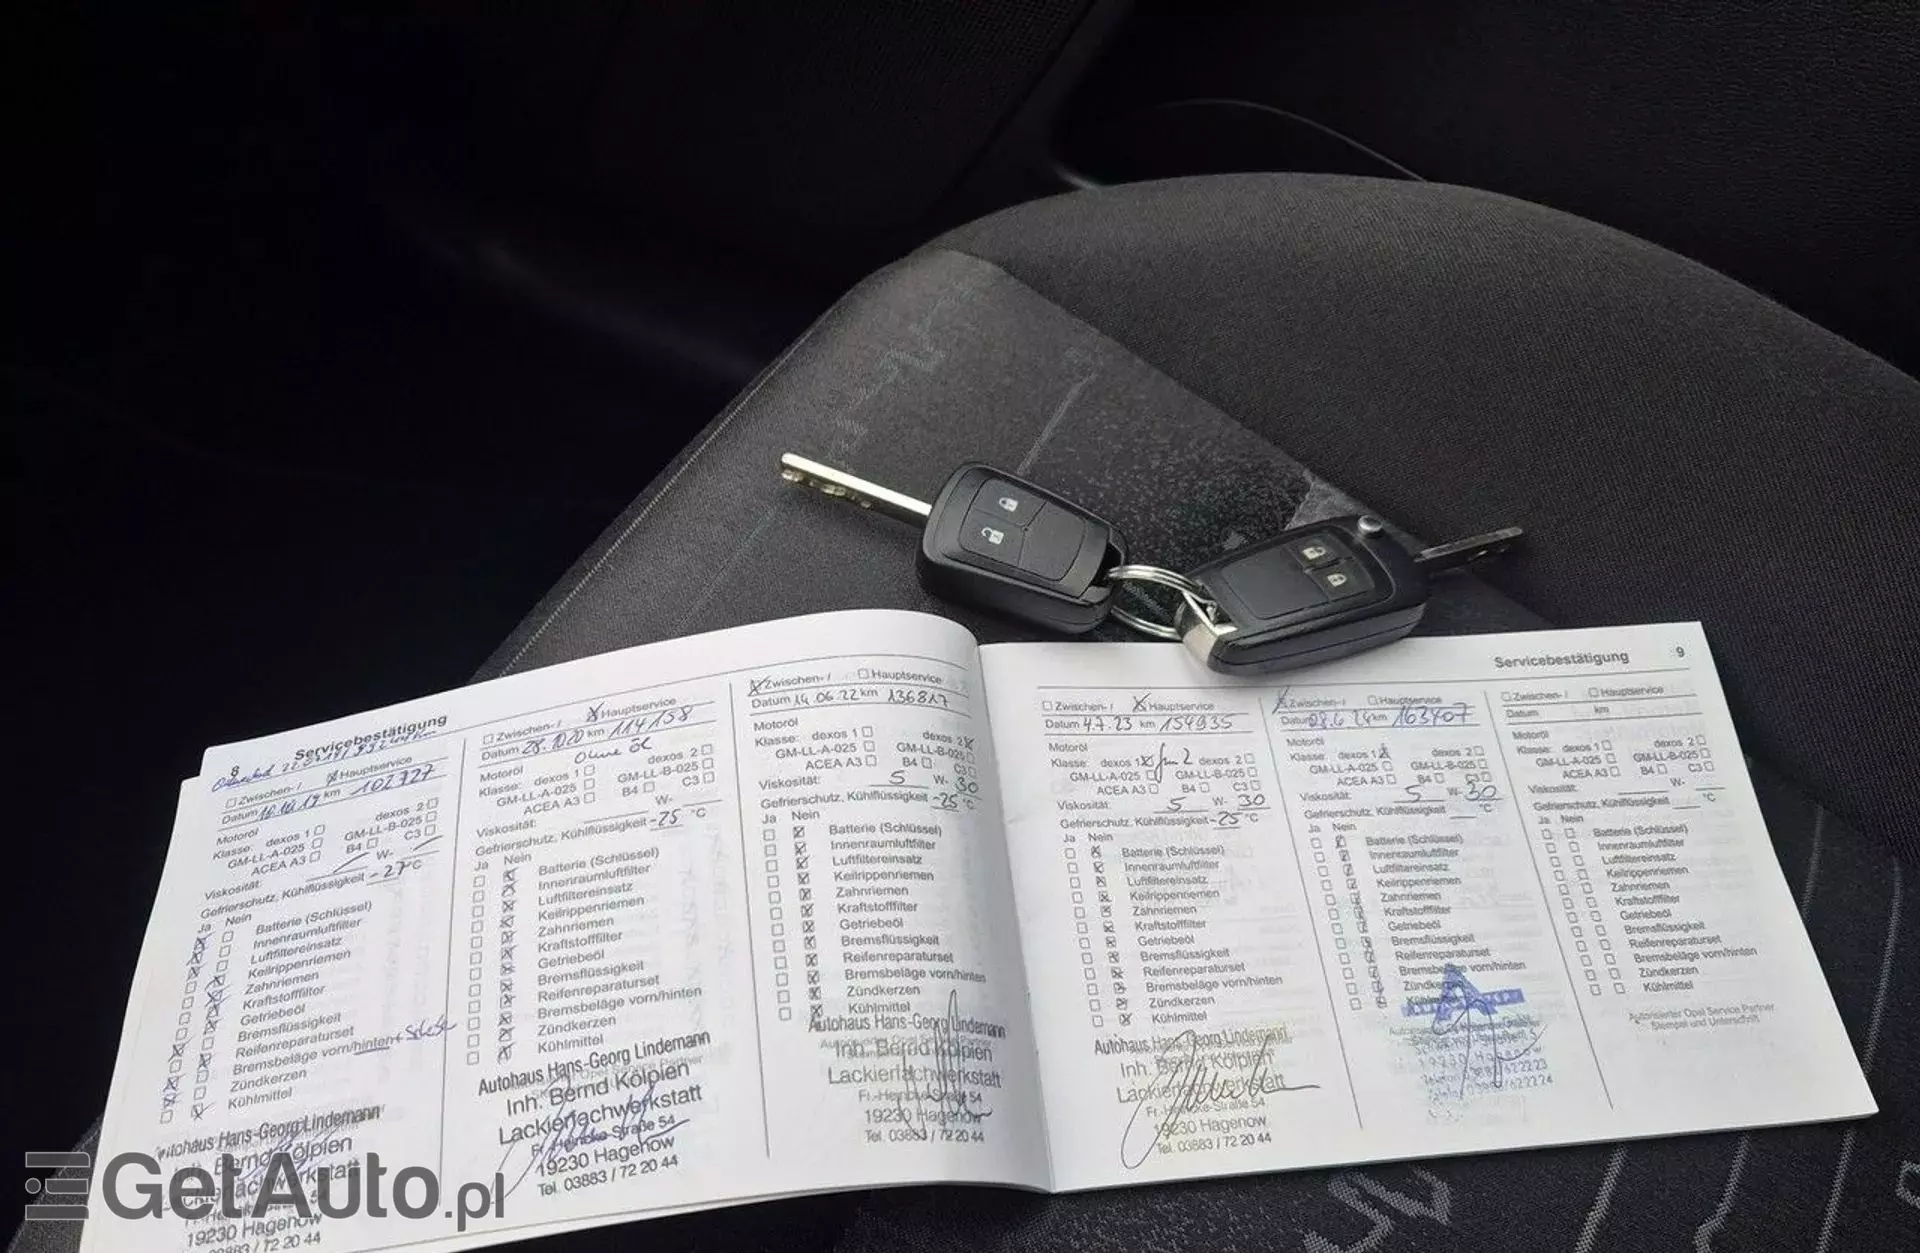 8
Servicebestätigung
☐ Zwischen- / ☒ Hauptservice
Datum 16.10.19 km 102727
Motoröl
Klasse: dexos 1 ☐ dexos 2 ☐
GM-LL-A-025 ☐ GM-LL-B-025 ☐
ACEA A3 ☐ B4 ☐ C3 ☐
Viskosität: W-
Gefrierschutz, Kühlflüssigkeit -27 °C
Ja Nein
Batterie (Schlüssel)
Innenraumluftfilter
Luftfiltereinsatz
Keilrippenriemen
Zahnriemen
Kraftstofffilter
Getriebeöl
Bremsflüssigkeit
Reifenreparaturset
Bremsbeläge vorn/hinten
Zündkerzen
Kühlmittel
Autohaus Hans-Georg Lindemann
Inh. Bernd Kölpien
Lackierfachwerkstatt
19230 Hagenow
03883 / 72 20 44
☐ Zwischen- / ☒ Hauptservice
Datum 28.10.20 km 114158
Ohne Öl
Motoröl
Klasse: dexos 1 ☐ dexos 2 ☐
GM-LL-A-025 ☐ GM-LL-B-025 ☐
ACEA A3 ☐ B4 ☐ C3 ☐
Viskosität: W-
Gefrierschutz, Kühlflüssigkeit -25 °C
Ja Nein
Batterie (Schlüssel)
Innenraumluftfilter
Luftfiltereinsatz
Keilrippenriemen
Zahnriemen
Kraftstofffilter
Getriebeöl
Bremsflüssigkeit
Reifenreparaturset
Bremsbeläge vorn/hinten
Zündkerzen
Kühlmittel
Autohaus Hans-Georg Lindemann
Inh. Bernd Kölpien
Lackierfachwerkstatt
Fr.-Heincke-Straße 54
19230 Hagenow
Tel. 03883 / 72 20 44
☒ Zwischen- / ☐ Hauptservice
Datum 14.06.22 km 136817
Motoröl
Klasse: dexos 1 ☐ dexos 2 ☒
GM-LL-A-025 ☐ GM-LL-B-025 ☐
ACEA A3 ☐ B4 ☐ C3 ☐
Viskosität: 5 W- 30
Gefrierschutz, Kühlflüssigkeit -25 °C
Ja Nein
Batterie (Schlüssel)
Innenraumluftfilter
Luftfiltereinsatz
Keilrippenriemen
Zahnriemen
Kraftstofffilter
Getriebeöl
Bremsflüssigkeit
Reifenreparaturset
Bremsbeläge vorn/hinten
Zündkerzen
Kühlmittel
Autohaus Hans-Georg Lindemann
Inh. Bernd Kölpien
Lackierfachwerkstatt
Fr.-Heincke-Straße 54
19230 Hagenow
Tel. 03883 / 72 20 44
Servicebestätigung 9
☐ Zwischen- / ☒ Hauptservice
Datum 4.7.23 km 154935
Motoröl
Klasse: dexos 1 ☒ dexos 2 ☐
GM-LL-A-025 ☐ GM-LL-B-025 ☐
ACEA A3 ☐ B4 ☐ C3 ☐
Viskosität: 5 W- 30
Gefrierschutz, Kühlflüssigkeit -25 °C
Ja Nein
Batterie (Schlüssel)
Innenraumluftfilter
Luftfiltereinsatz
Keilrippenriemen
Zahnriemen
Kraftstofffilter
Getriebeöl
Bremsflüssigkeit
Reifenreparaturset
Bremsbeläge vorn/hinten
Zündkerzen
Kühlmittel
Autohaus Hans-Georg Lindemann
Inh. Bernd Kölpien
Lackierfachwerkstatt
Fr.-Heincke-Straße 54
19230 Hagenow
Tel. 03883 / 72 20 44
☒ Zwischen- / ☐ Hauptservice
Datum 28.6.24 km 163407
Motoröl
Klasse: dexos 1 ☒ dexos 2 ☐
GM-LL-A-025 ☐ GM-LL-B-025 ☐
ACEA A3 ☐ B4 ☐ C3 ☐
Viskosität: 5 W- 30
Gefrierschutz, Kühlflüssigkeit °C
Ja Nein
Batterie (Schlüssel)
Innenraumluftfilter
Luftfiltereinsatz
Keilrippenriemen
Zahnriemen
Kraftstofffilter
Getriebeöl
Bremsflüssigkeit
Reifenreparaturset
Bremsbeläge vorn/hinten
Zündkerzen
Kühlmittel
19230 Hagenow
☐ Zwischen- / ☐ Hauptservice
Datum km
Motoröl
Klasse: dexos 1 ☐ dexos 2 ☐
GM-LL-A-025 ☐ GM-LL-B-025 ☐
ACEA A3 ☐ B4 ☐ C3 ☐
Viskosität: W-
Gefrierschutz, Kühlflüssigkeit °C
Ja Nein
Batterie (Schlüssel)
Innenraumluftfilter
Luftfiltereinsatz
Keilrippenriemen
Zahnriemen
Kraftstofffilter
Getriebeöl
Bremsflüssigkeit
Reifenreparaturset
Bremsbeläge vorn/hinten
Zündkerzen
Kühlmittel
Autorisierter Opel Service Partner
Stempel und Unterschrift
GetAuto.pl